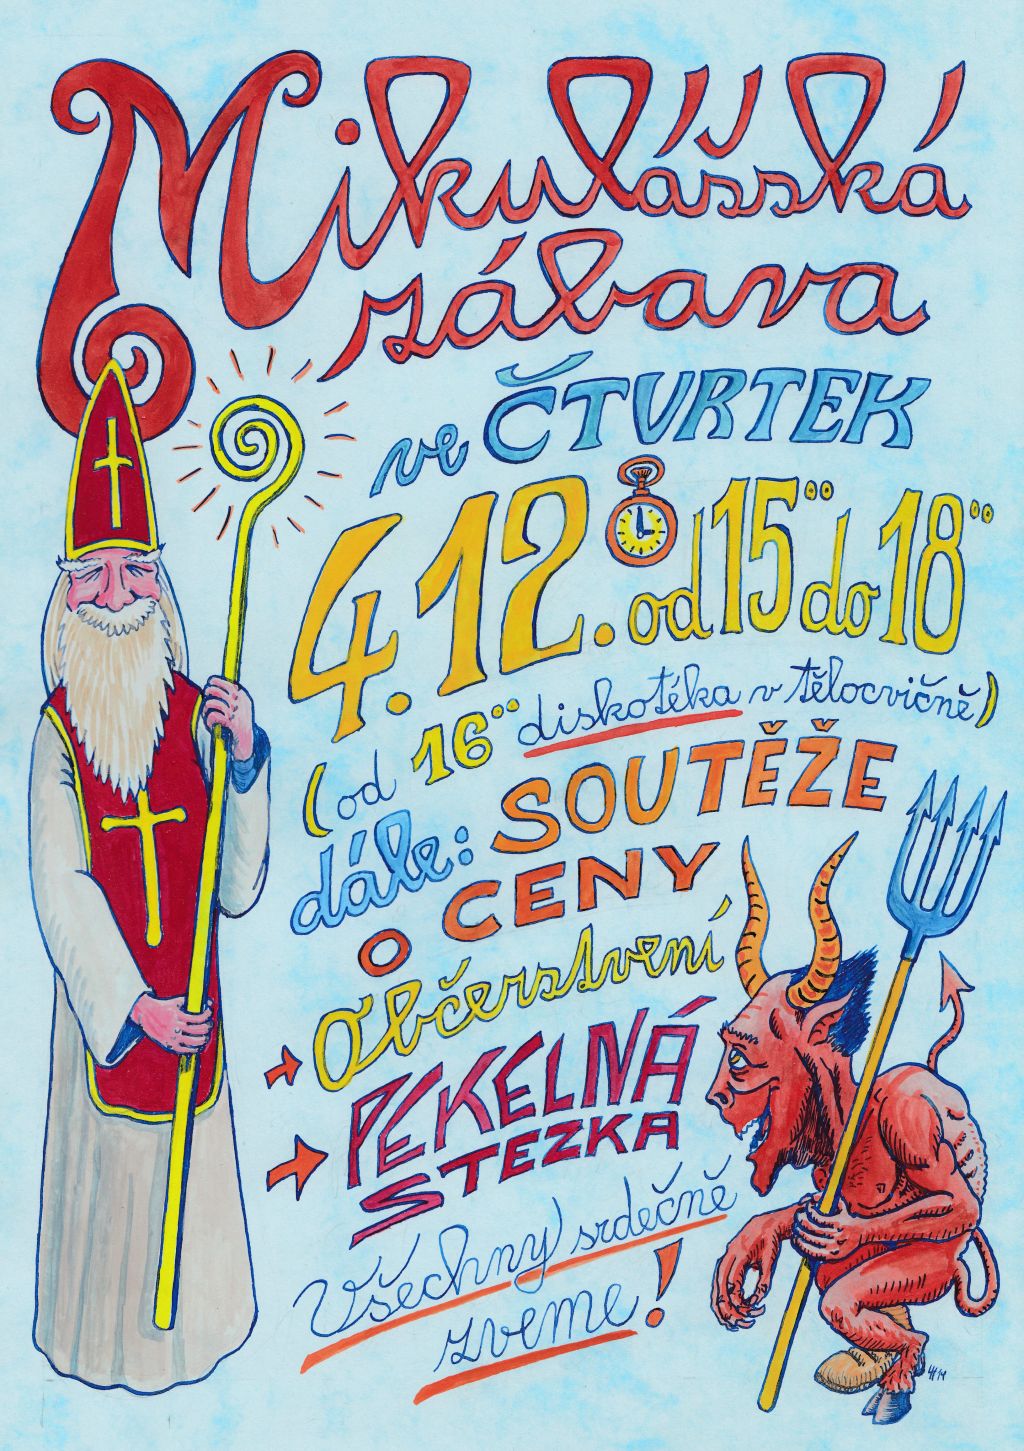 Mikulášská
zábava
ve ČTVRTEK
4.12. od 15°° do 18°°
(od 16°° diskotéka v tělocvičně)
dále: SOUTĚŽE
O CENY
Občerstvení
PEKELNÁ
STEZKA
Všechny srdečně
zveme!